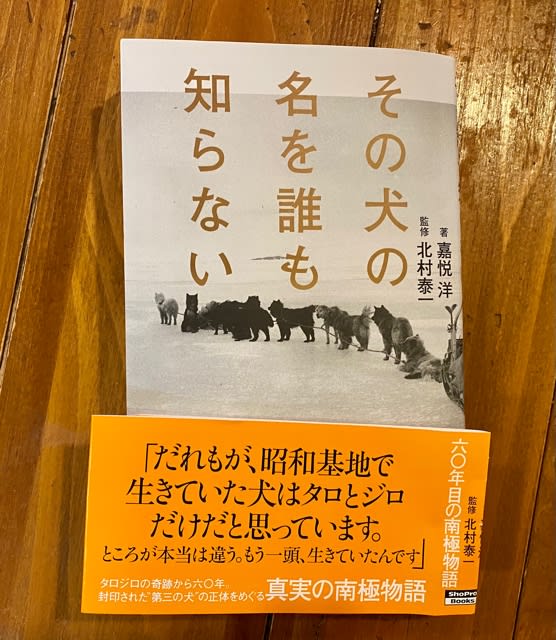 その犬の
名を誰も
知らない
著 嘉悦 洋
監修 北村泰一
「だれもが、昭和基地で
生きていた犬はタロとジロ
だけだと思っています。
ところが本当は違う。もう一頭、生きていたんです」
タロジロの奇跡から六〇年。
封印された"第三の犬"の正体をめぐる
真実の南極物語
六〇年目の南極物語
監修 北村泰一
ShoPro
Books